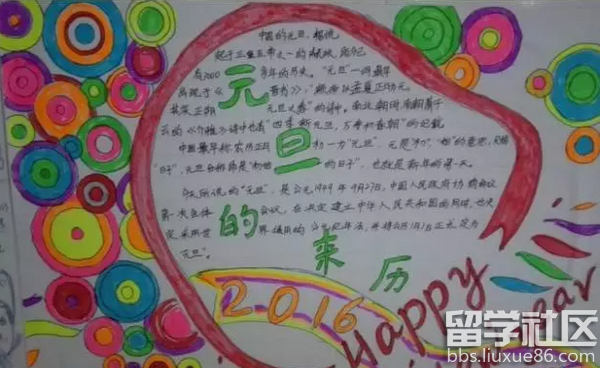 中国的元旦，据说
起于三皇五帝之一的颛顼，距今已
有3000多年的历史。"元旦"一词最早
出现于《晋书》："颛帝以孟夏正月为元
其实正朔元旦之春"的诗中。南北朝时，南朝萧子
云的《介雅》诗中也有"四季新元旦，万寿初春朝"的记载
中国最早称农历正月初一为"元旦"，元是"初"、"始"的意思，旦指
"日子"，元旦合称即是"初始的日子"，也就是新年的第一天。
今天所说的"元旦"，是公元1949年9月27日，中国人民政府协商会议
第一次全体会议，在决定建立中华人民共和国的同时，也决
定采用世界通用的公元纪年法，并将公历1月1日正式定为
元旦"。
元旦的来历
2016
Happy
ear
留学社区
bbs.liuxue86.com